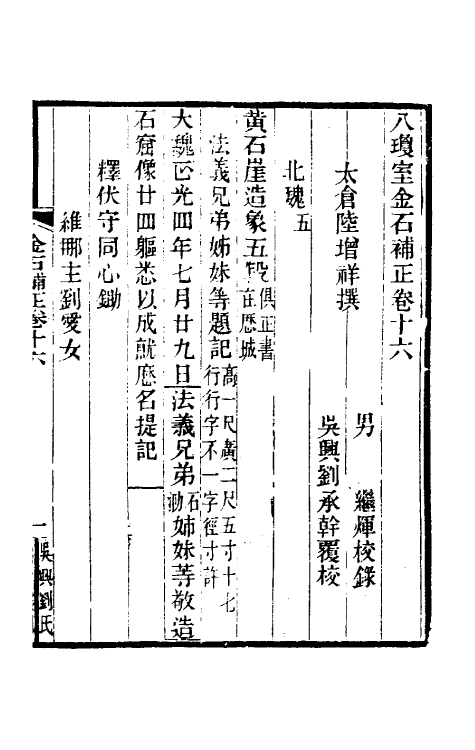 八瓊室金石補正卷十六
太倉陸增祥撰
男　繼煇校錄
吳興劉承幹覆校
北魏五
黄石崖造象五段俱正書在歷城
法義兄弟姊妹等題記高一尺廣二尺五寸十七行行字不一字徑寸許
大魏正光四年七月廿九日法義兄弟石泐姊妹等敬造
石窟像廿四軀悉以成就歷名提記
釋伏守同心鋤
維那主劉愛女
金石補正卷十六
一
吳興劉氏